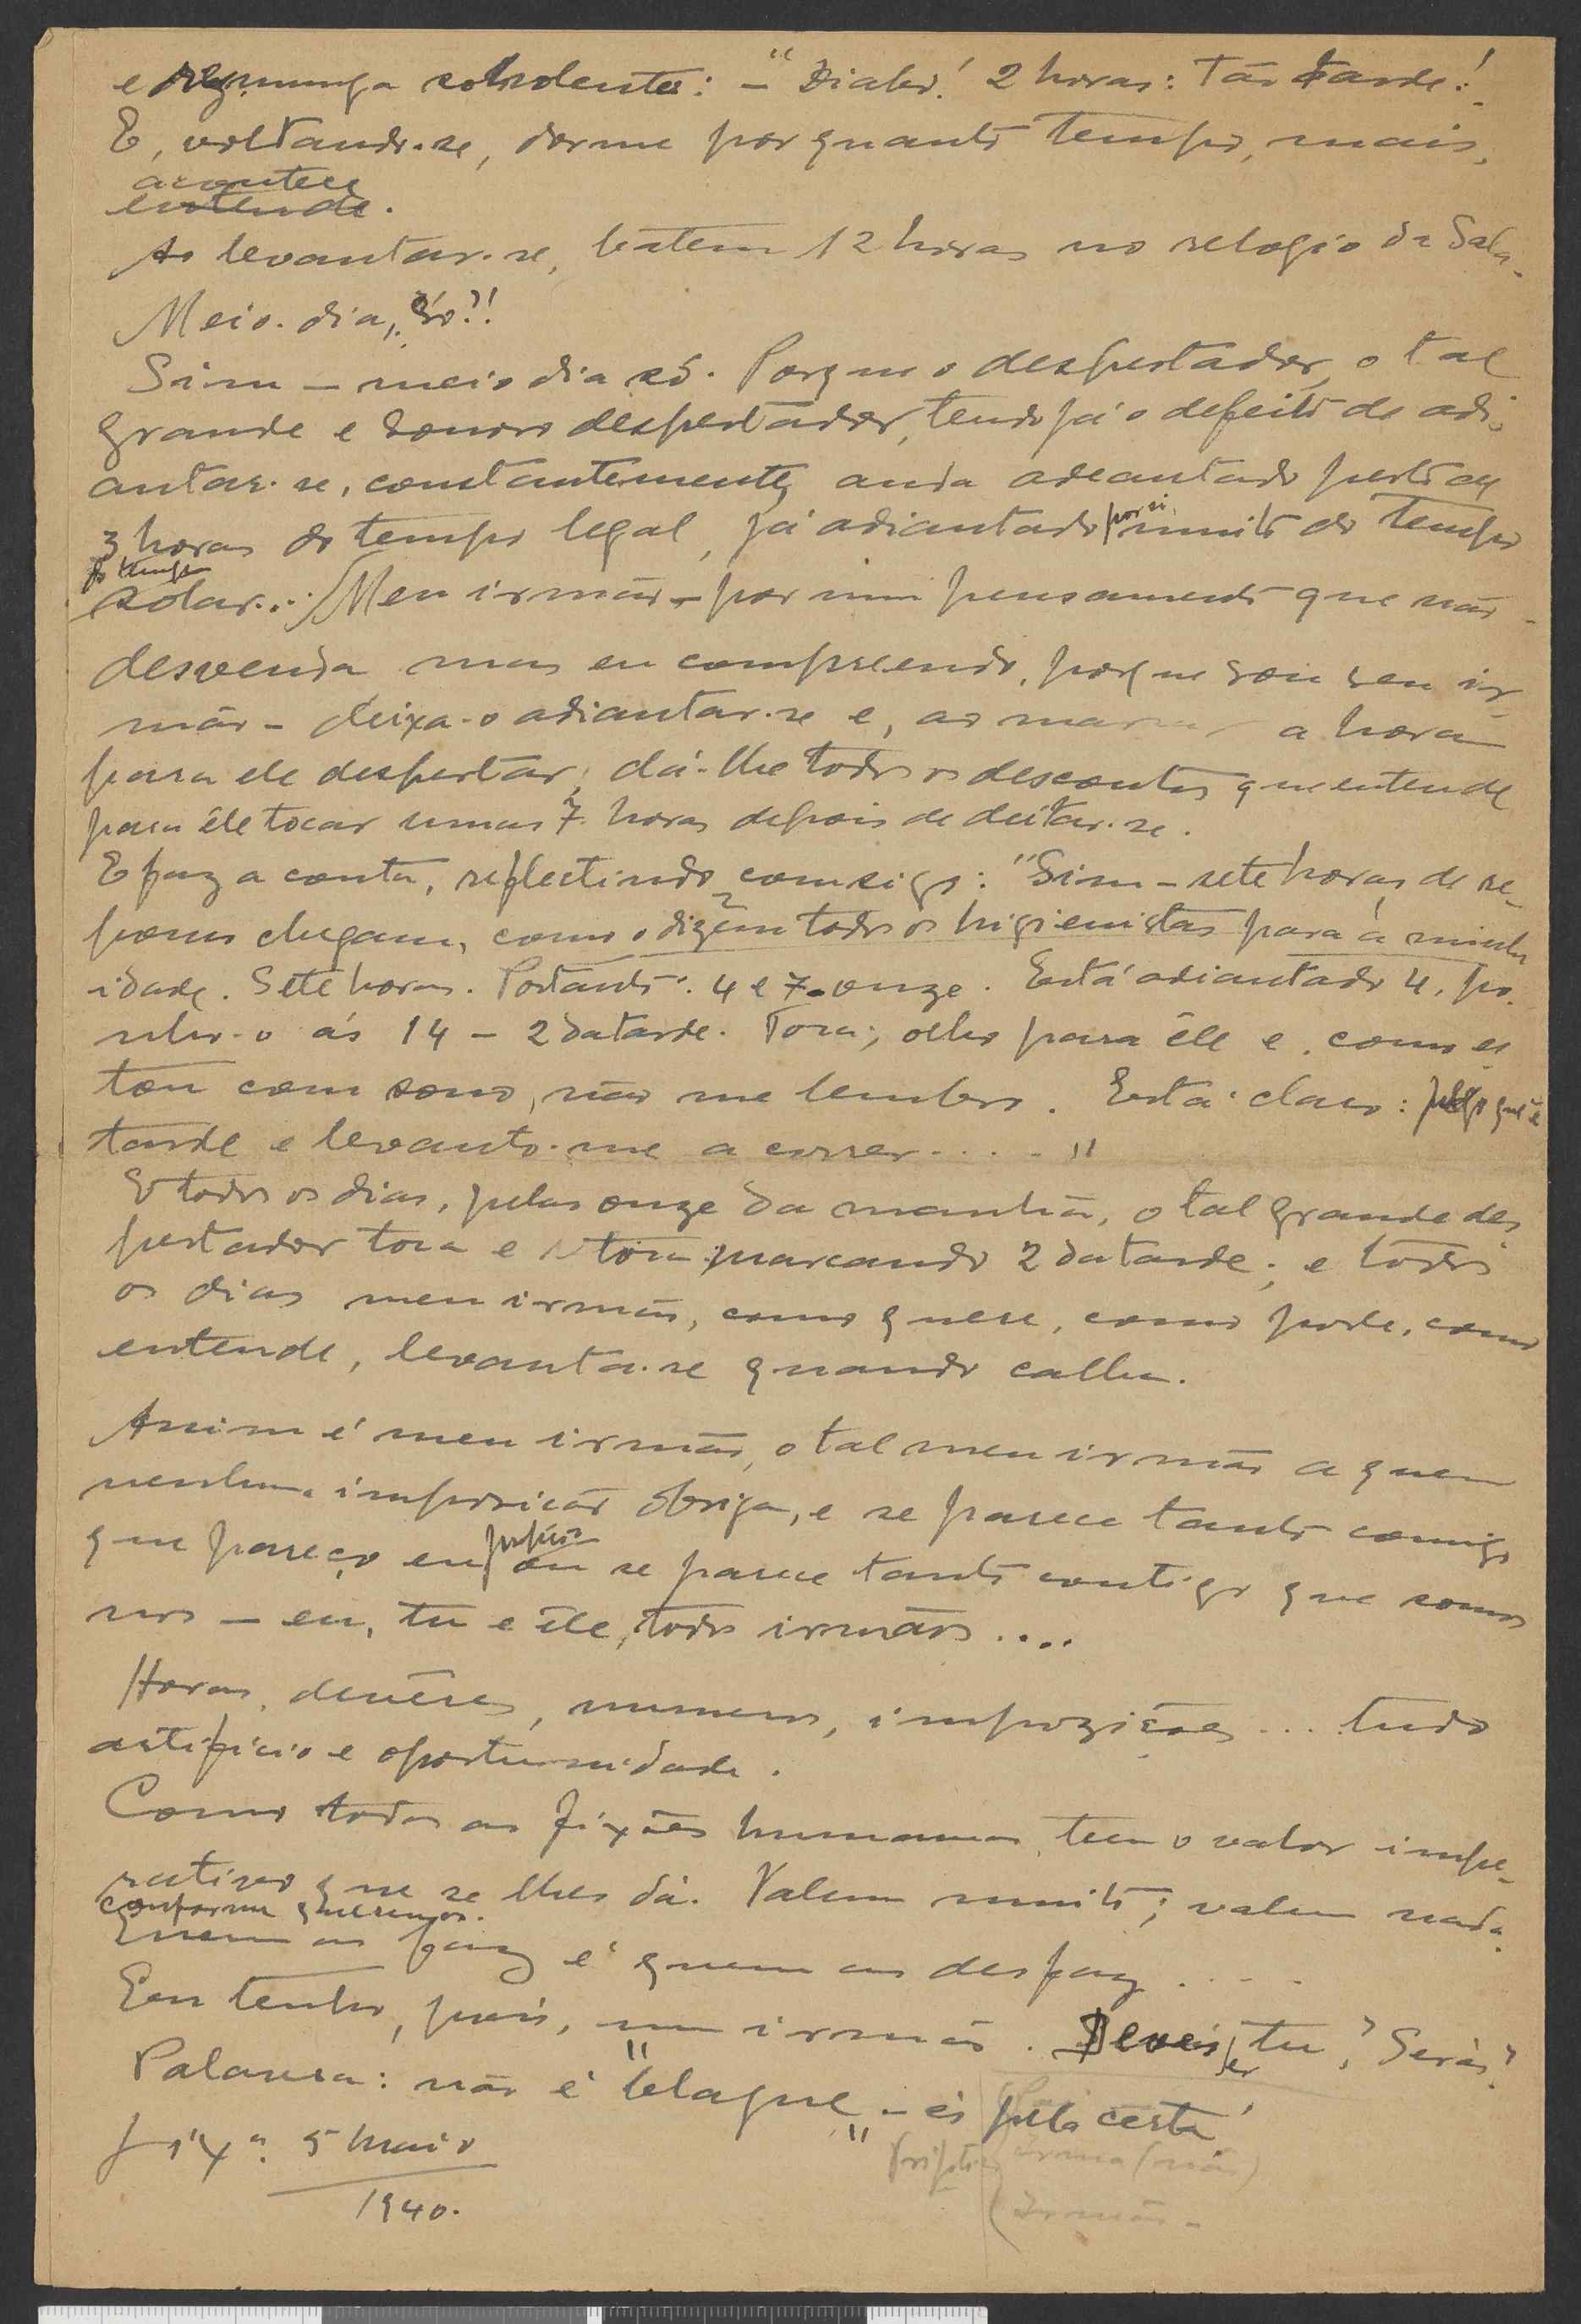 e resmunga sonolento: - "Diabo! 2 horas: tão tarde!
E, voltando-se, dorme por quanto tempo, mais,
acontece
entende.
Ao levantar-se, batem 12 horas no relogio da Sala.
Meio-dia, só?!
Sim - meio dia só. Porque o despertador, o tal
grande e sonoro despertador, tendo já o defeito de adi-
antar-se, constantemente, anda adeantado perto de
3 horas do tempo legal, já adiantado por si, muito do tempo
do tempo
solar... Meu irmão - por um pensamento que não
desvenda mas eu compreendo, porque sou seu ir-
mão - deixa-o adiantar-se e, ao marcar a hora
para ele despertar, dá-lhe todos os descontos que entende
para êle tocar umas 7 horas depois de deitar-se.
E faz a conta, reflectindo comsigo: "Sim - sete horas de re-
pouso chegam, como o dizem todos os higienistas para a minha
idade. Sete horas. Portanto: 4 e 7 - onze. Está adiantado 4, po-
nho-o ás 14 - 2 da tarde. Toca; olho para êle e, como es
tou com sono, não me lembro. Está claro: julgo que é
tarde e levanto-me a correr.... "
E todos os dias, pelas onze da manhã, o tal grande des
pertador toca e toca marcando 2 da tarde; e todos
os dias meu irmão, como quere, como pode, como
entende, levanta-se quando calha.
Assim é meu irmão, o tal meu irmão a quem
nenhuma imposição obriga, e se parece tanto comigo
que pareço eu próprio ou se parece tanto contigo que somos
nós - eu, tu e êle, todos irmãos....
Horas, devêres, numeros, impozições... tudo
artificio e oportunidade.
Como todas as fixões humanas, teem o valor impe-
rativo que se lhes dá. Valem muito; valem nada.
conforme queremos.
Quem as faz é quem as desfaz....
Eu tenho, pois, um irmão. Deves ser tu? Serás?
Palavra: não é "blague" - és pela certa!
Lixª. 5 maio
1940.
irmão (não)
(Irmão -